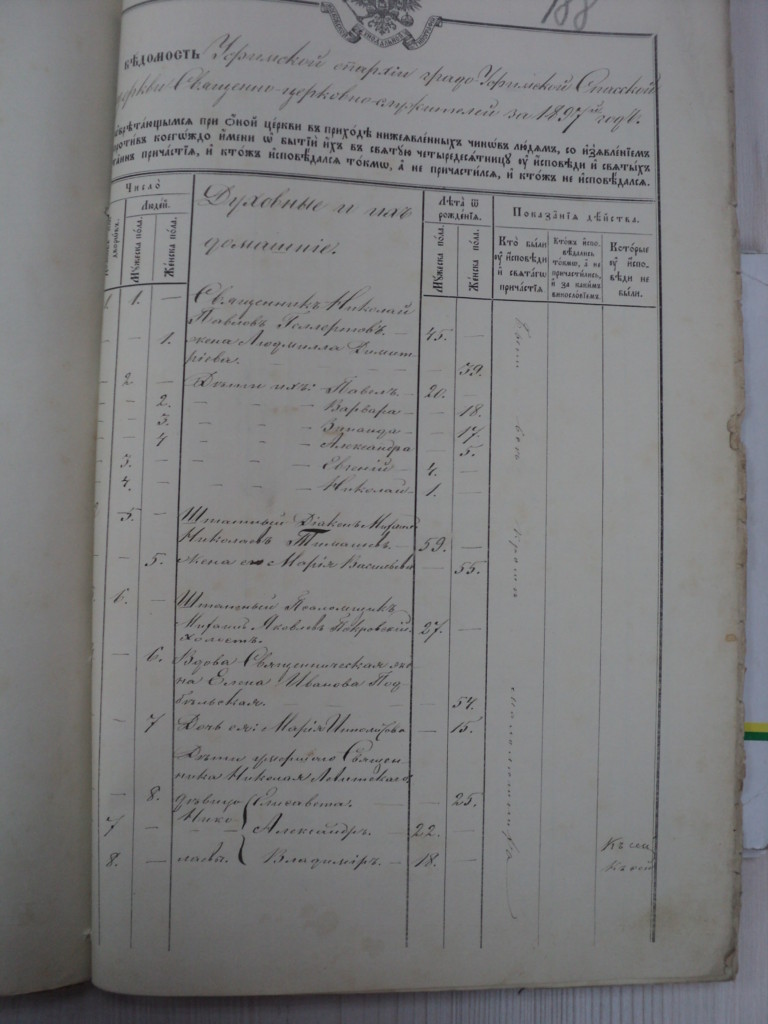 188
ВѢДОМОСТЬ Уфимской епархіи градо-Уфимской Спасской
церкви Священно-церковно-служителей за 1897й годъ.
ѡбрѣтающымсѧ при ѻной церкви въ приходѣ нижеѧвленныхъ чинѡвъ людѧмъ, со изъѧвленіемъ
противъ коегѡждо имени ѿ бытіи ихъ въ свѧтую четыредесѧтницу оу исповѣди и свѧтыхъ
таинъ причастіѧ, и ктожъ исповѣдалсѧ токмѡ, а не причастилсѧ, и ктожъ не исповѣдалсѧ.
Число
Людей.
дворѡвъ.
Мужеска пола.
Женска пола.
Духовные и ихъ
домашніе:
Лѣта ѿ
рожденіѧ.
Мужеска пола.
Женска пола.
Показаніѧ дѣйства.
Кто были
оу исповѣди
и свѧтагѡ
причастіѧ
Ктожъ испо-
вѣдались
токмѡ, а не
причастились,
и за какимъ
винословіемъ.
Которые
оу испо-
вѣди не
были.
1 1. — Священникъ Николай
Павловъ — 45. —
— — 1. жена Людмилла Димит-
ріева. — — 39.
— 2 — Дѣти ихъ: Павелъ — 20. —
— — 2. — — — Варвара — — 18.
— — 3. — — — Зинаида — — 17.
— — 4 — — — Александра — 5.
— 3. — — — — Евгеній — 4. —
— 4. — — — — Николай — 1. —
— 5. — Штатный Діаконъ
Николаевъ Тимашевъ. — 59. —
— — 5. жена его Марія Васильева — 55.
— 6. — Штатный Псаломщикъ
Яковлевъ Покровскій 27. —
холостъ.
— — 6. Вдова Священническая же-
на Елена Иванова Под-
бѣльская. — — 54.
— — 7 Дочь ея: Марія Ипполитова — 15.
Дѣти умершаго Священ-
ника Николая
— — 8. дѣвица Елисавета. — 25.
7 — — Нико- Александръ. — 22. —
8. — — лаева. Владиміръ. — 18. —
Всѣ были кромѣ